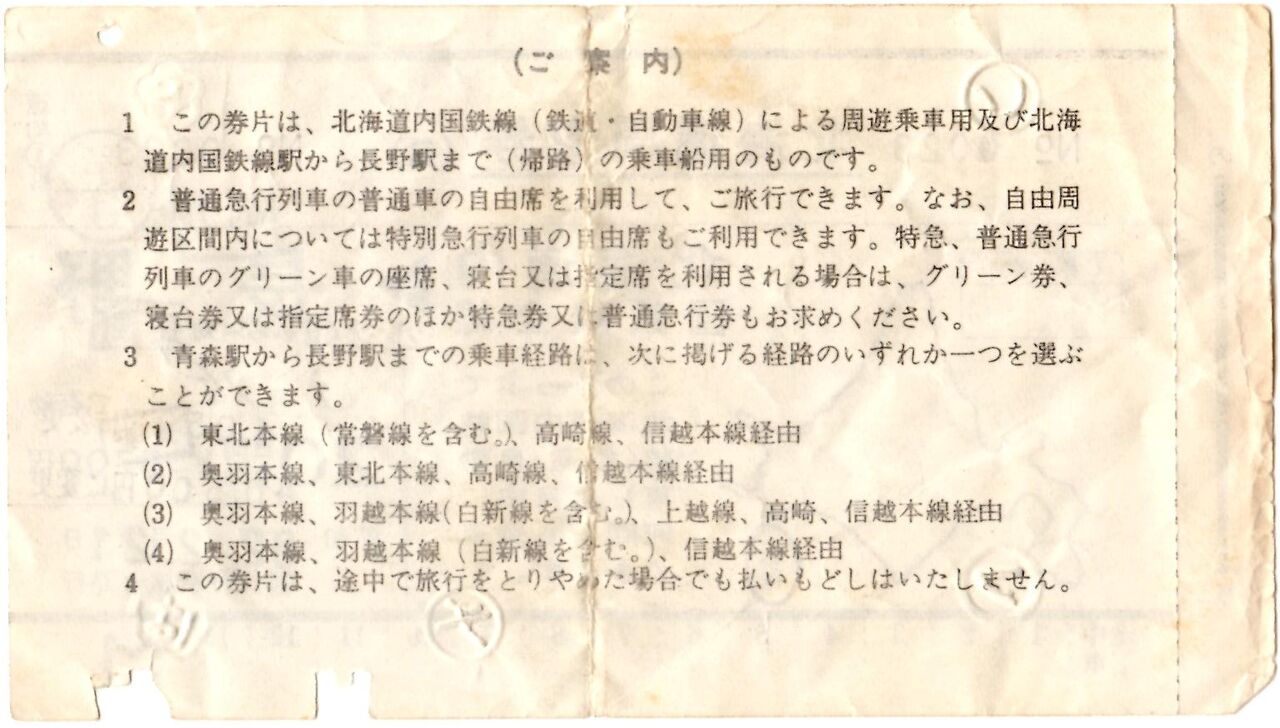 (ご案内)
1 この券片は、北海道内国鉄線（鉄道・自動車線）による周遊乗車用及び北海
道内国鉄線駅から長野駅まで（帰路）の乗車船用のものです。
2 普通急行列車の普通車の自由席を利用して、ご旅行できます。なお、自由周
遊区間内については特別急行列車の自由席もご利用できます。特急、普通急行
列車のグリーン車の座席、寝台又は指定席を利用される場合は、グリーン券、
寝台券又は指定席券のほか特急券又は普通急行券もお求めください。
3 青森駅から長野駅までの乗車経路は、次に掲げる経路のいずれか一つを選ぶ
ことができます。
(1) 東北本線（常磐線を含む。）、高崎線、信越本線経由
(2) 奥羽本線、東北本線、高崎線、信越本線経由
(3) 奥羽本線、羽越本線(白新線を含む。)、上越線、高崎、信越本線経由
(4) 奥羽本線、羽越本線（白新線を含む。）、信越本線経由
4 この券片は、途中で旅行をとりやめた場合でも払いもどしはいたしません。